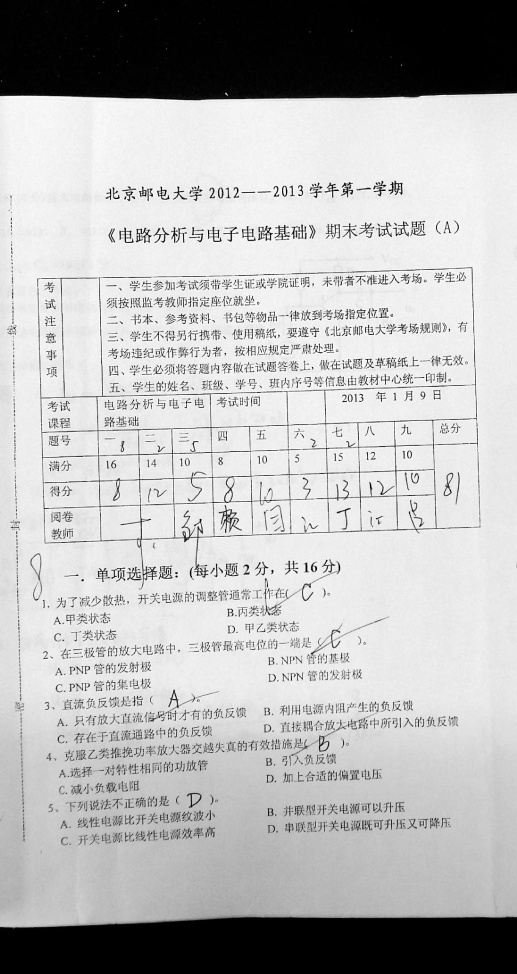 北京邮电大学 2012——2013 学年第一学期
《电路分析与电子电路基础》期末考试试题（A）
考试注意事项
一、学生参加考试须带学生证或学院证明，未带者不准进入考场。学生必须按照监考教师指定座位就坐。
二、书本、参考资料、书包等物品一律放到考场指定位置。
三、学生不得另行携带、使用稿纸，要遵守《北京邮电大学考场规则》，有考场违纪或作弊行为者，按相应规定严肃处理。
四、学生必须将答题内容做在试题答卷上，做在试题及草稿纸上一律无效。
五、学生的姓名、班级、学号、班内序号等信息由教材中心统一印制。
考试课程 电路分析与电子电路基础 考试时间 2013 年 1 月 9 日
题号 一 8 二 2 三 5 四 五 六 2 七 2 八 九 总分
满分 16 14 10 8 10 5 15 12 10
得分 8 12 5 8 10 3 13 12 10 81
阅卷教师
8
一．单项选择题：(每小题 2 分，共 16 分)
1. 为了减少散热，开关电源的调整管通常工作在( C )。
A.甲类状态 B.丙类状态
C. 丁类状态 D. 甲乙类状态
2、在三极管的放大电路中，三极管最高电位的一端是（ C ）。
A. PNP 管的发射极 B. NPN 管的基极
C. PNP 管的集电极 D. NPN 管的发射极
3、直流负反馈是指（ A ）。
A. 只有放大直流信号时才有的负反馈 B. 利用电源内阻产生的负反馈
C. 存在于直流通路中的负反馈 D. 直接耦合放大电路中所引入的负反馈
4、克服乙类推挽功率放大器交越失真的有效措施是( B )。
A.选择一对特性相同的功放管 B. 引入负反馈
C. 减小负载电阻 D. 加上合适的偏置电压
5、下列说法不正确的是（ D ）。
A. 线性电源比开关电源纹波小 B. 并联型开关电源可以升压
C. 开关电源比线性电源效率高 D. 串联型开关电源既可升压又可降压